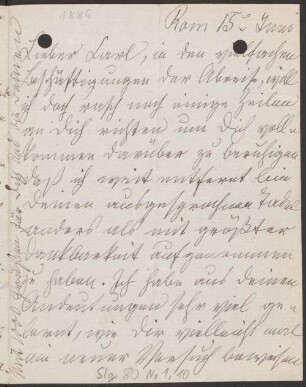 1886
Rom 15t Juni
Lieber Carl, in den vielfachen
Beschäftigungen der Abreise, will
ich doch rasch noch einige Zeilen
an Dich richten um Dich voll-
kommen darüber zu beruhigen
daß ich weit entfernt bin
Deinen ausgesprochenen Tadel
anders als mit größter
Dankbarkeit aufgenommen
zu haben. Ich habe aus Deinen
Andeutungen sehr viel ge-
lernt, wie Dir vielleicht mal
ein neuer Versuch beweisen
Slg 80 Nr 1, 10